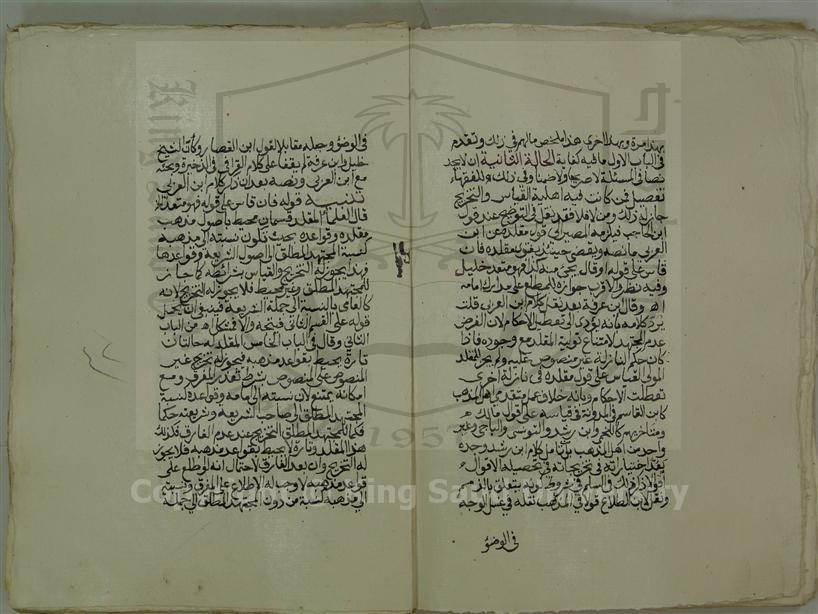 بهذا مرة وبهذا اخرى هذا ملخص ما لهم في ذلك وتقدم
في الباب الاول ما فيه كفاية الحالة الثانية ان لا يجد
نصا في المسئلة لا صريحا ولا ضمنا وفي ذلك للفقهاء
تفصيل فمن كانت فيه اهلية القياس والتخريج
جاز له ذلك ومن لا فلا فقد نقل في التوضيح عند قول
ابن الحاجب فيلزمه المصير الى قول مقلده عن ابن
العربي ما نصه ويقضي حينئذ بفتوى مقلده فان
قاس على قوله او قال يجيء منه كذا فهو متعد خليل
وفيه نظر والاقرب جوازه للمطلع على مدارك امامه
اه وقال ابن عرفة بعد نقل كلام ابن العربي قلت
يرد كلامه بانه يؤدي الى تعطيل الاحكام لان الفرض
عدم المجتهد لامتناع تولية المقلد مع وجوده فاذا
كان حكم النازلة غير منصوص عليه ولم يجز للمقلد
المولى القياس على قول مقلده في نازلة اخرى
تعطلت الاحكام وبانه خلاف عمل متقدمي اهل المذهب
كابن القاسم في المدونة في قياسه على قول مالك
ومتاخريهم كاللخمي وابن رشد والتونسي والباجي وغير
واحد من اهل المذهب بل من تامل كلام ابن رشد وجده
يعد اختياراته في تخريجاته في تحصيله الاقوال
اقوالا
ونقل
في غسل الوجه
في الوضوء
في الوضوء وجعله مقابلا لقول ابن القصار وكان الشيخ
خليل وابن عرفة لم يقفا على كلام القرافي في الذخيرة وبحثه
مع ابن العربي ونصه بعد ان ذكر كلام ابن العربي
تنبيه قوله فان قاس على قوله فهو متعد
قال العلماء المقلد قسمان محيط باصول مذهب
مقلده وقواعده بحيث تكون نسبته الى مذهبه
كنسبة المجتهد المطلق الى اصول الشريعة وقواعدها
فهذا يجوز له التخريج والقياس بشرائطه كما جاز
للمجتهد المطلق وغير محيط فلا يجوز له التخريج لانه
كالعامي بالنسبة الى جملة الشريعة فينبغي ان يحمل
قوله على القسم الثاني فيتجه والا فمشكل اه من الباب
الثاني وقال في الباب الخامس المقلد له حالتان
تارة يحيط بقواعد مذهبه فيجوز له تخريج غير
المنصوص على المنصوص بشرط تعذر الفارق ومع
امكانه يمتنع لان نسبته الى امامه وقواعده كنسبة
المجتهد المطلق الى صاحب الشريعة وشريعته فكما
للمجتهد المطلق التخريج عند عدم الفارق فكذلك
هذا المقلد وتارة لا يحيط بقواعد مذهبه فلا يجوز
له التخريج وان بعد الفارق لاحتمال انه لو اطلع على
قواعد مذهبه لاوجب له الاطلاع على الفرق ونسبته
الى مذهبه كنسبة من دون المجتهد المطلق الى جملة
1957
Copyright © King Saud University